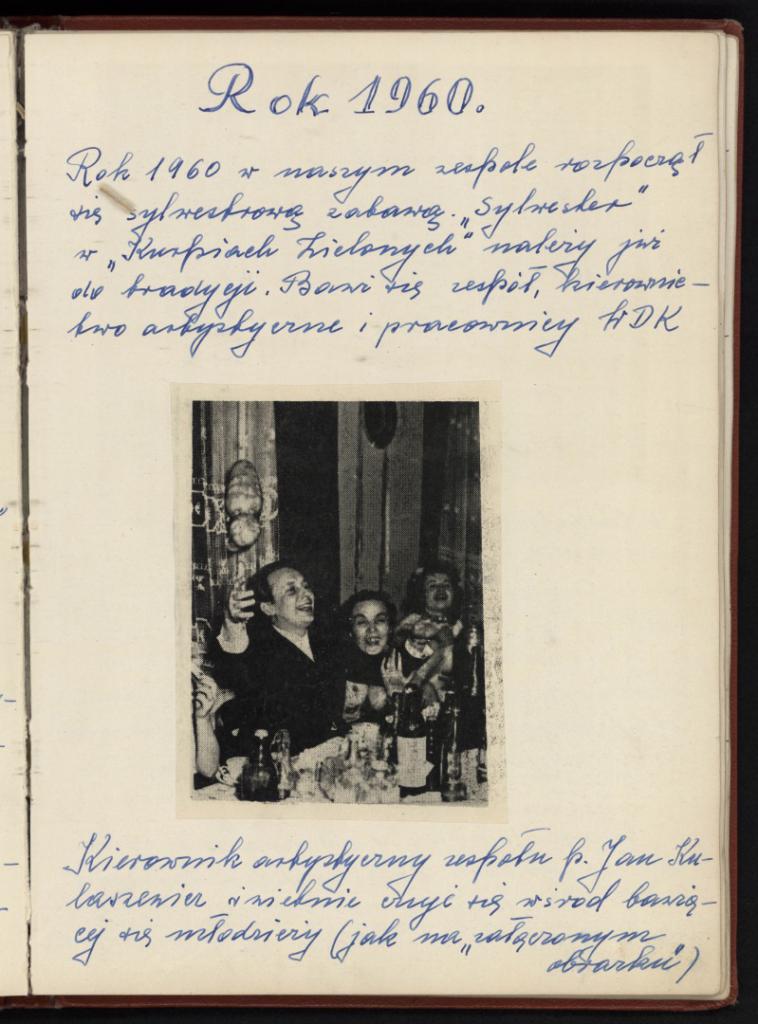 Rok 1960.
Rok 1960 w naszym zespole rozpoczął
się sylwestrową zabawą. „Sylwester"
w „Kurpiach Zielonych" należy już
do tradycji. Bawi się zespół, kierownic-
two artystyczne i pracownicy WDK
Kierownik artystyczny zespołu p. Jan Ku-
laszewicz świetnie czuje się wśród bawią-
cej się młodzieży (jak na „załączonym
obrazku")